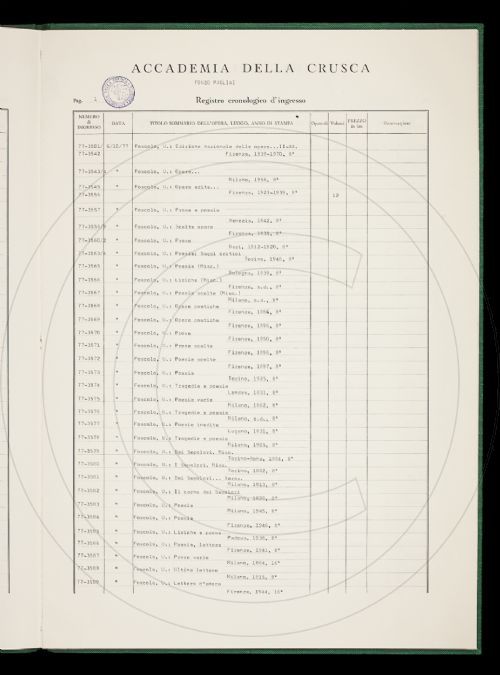 ACCADEMIA DELLA CRUSCA
FONDO PUGLIAI
Pag. 1 Registro cronologico d'ingresso
NUMERO di INGRESSO DATA TITOLO SOMMARIO DELL'OPERA, LUOGO, ANNO DI STAMPA Opuscoli Volumi PREZZO in lire Osservazioni
77-3501/ 6/10/77 Foscolo, U.: Edizione nazionale delle opere...
77-3542 Firenze, 1939-1970, 8°
77-3543/4 " Foscolo, U.: Opere...
Milano, 1966, 8°
77-3545 " Foscolo, U.: Opere edite...
77-3556 Firenze, 1923-1939, 8° 12
77-3557 " Foscolo, U.: Prose e poesie
Venezia, 1842, 8°
" Foscolo, U.: Scelte opere
Firenze, 1835, 8°
77-3560/2 " Foscolo, U.: Prose
Bari, 1912-1920, 8°
77-3563/4 " Foscolo, U.: Poesie; Saggi critici
Torino, 1948, 8°
77-3565 " Foscolo, U.: Poesie (Misc.)
Bologna, 1939, 8°
77-3566 " Foscolo, U.: Liriche (Misc.)
Firenze, s.d., 8°
77-3567 " Foscolo, U.: Poesie scelte (Misc.)
Milano, s.d., 8°
77-3568 " Foscolo, U.: Opere poetiche
Firenze, 1856, 8°
77-3569 " Foscolo, U.: Opere poetiche
Firenze, 1856, 8°
77-3570 " Foscolo, U.: Prose
Firenze, 1850, 8°
77-3571 " Foscolo, U.: Prose scelte
Firenze, 1896, 8°
77-3572 " Foscolo, U.: Poesie scelte
Firenze, 1897, 8°
77-3573 " Foscolo, U.: Poesie
Torino, 1925, 8°
77-3574 " Foscolo, U.: Tragedie e poesie
Londra, 1831, 8°
77-3575 " Foscolo, U.: Poesie varie
Milano, 1862, 8°
77-3576 " Foscolo, U.: Tragedie e poesie
Milano, s.d., 8°
77-3577 " Foscolo, U.: Poesie inedite
Lugano, 1831, 8°
77-3578 " Foscolo, U.: Tragedie e poesie
Milano, 1925, 8°
77-3579 " Foscolo, U.: Dei Sepolcri. Misc.
Torino-Roma, 1884, 8°
77-3580 " Foscolo, U.: I Sepolcri. Misc.
Torino, 1882, 8°
77-3581 " Foscolo, U.: Dei Sepolcri...
Milano, 1813, 8°
77-3582 " Foscolo, U.: Il carme dei Sepolcri
Milano, 1920, 8°
77-3583 " Foscolo, U.: Poesie
Milano, 1945, 8°
77-3584 " Foscolo, U.: Poesie
Firenze, 1946, 8°
77-3585 " Foscolo, U.: Liriche e prose
Padova, 1938, 8°
77-3586 " Foscolo, U.: Poesie, lettere
Firenze, 1941, 8°
77-3587 " Foscolo, U.: Prose varie
Milano, 1884, 16°
77-3588 " Foscolo, U.: Ultime lettere
Milano, 1915, 8°
77-3589 " Foscolo, U.: Lettere d'amore
Firenze, 1944, 16°